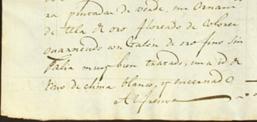 za pintadas de verde, una Ornam
de tela de oro floreado de Colores
guarnecido un Galon de oro fino sin
falta muy bien tratado, una id de
fino de china blanco, y encarnado